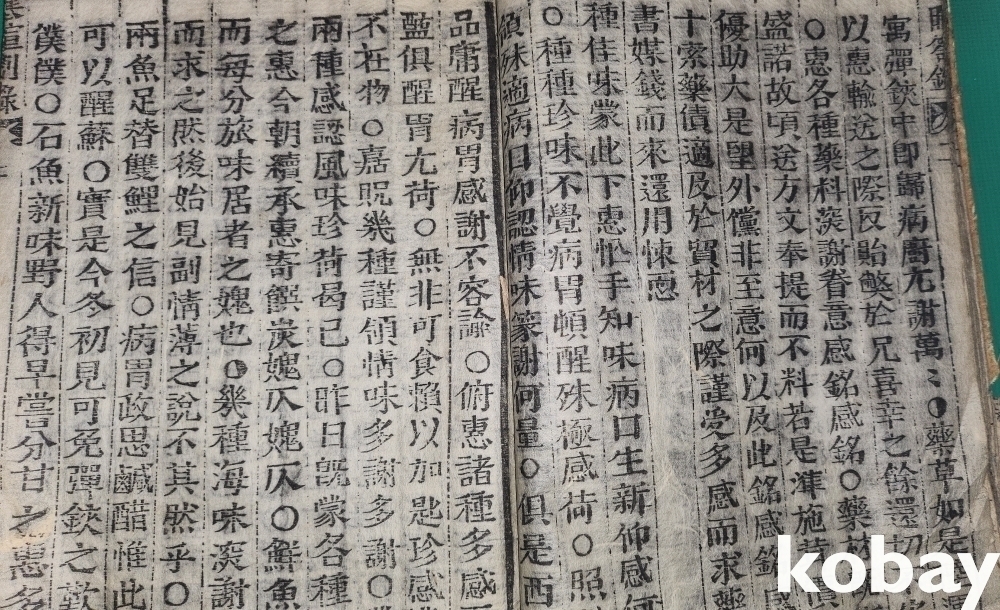 寓彈鋏中即歸病廚尤謝萬〻○藥草如是
以惠輸送之際反貽弊於兄喜幸之餘還切
○惠各種藥料深謝眷意感銘感銘○藥
盛諾故頃送方文奉提而不料若是準施
優助大是望外儻非至意何以及此銘感
十索藥債適及於買材之際謹受多感而求藥
書媒錢而來還用悚恧
種佳味蒙此下惠忙手知味病口生新仰感何
○種種珍味不覺病胃頓醒殊極感荷○照
領殊適病口仰認情味篆謝何量○俱是西
品庸醒病胃感謝不容諭○俯惠諸種多感
盬俱醒胃尤荷○無非可食賴以加匙珍感
不在物○嘉貺幾種謹領情味多謝多謝○
兩種感認風味珍荷曷已○昨日旣蒙各種
之惠今朝續承惠寄饌炭媿仄媿仄○鮮魚
而每分旅味居者之媿也○幾種海味深謝
而求之然後始見副情薄之說不其然乎○
兩魚足替雙鯉之信○病胃政思鹹醋惟此
可以醒蘇○實是今冬初見可免彈鋏之歎
僕僕○石魚新味野人得早嘗分甘之惠多
kobay